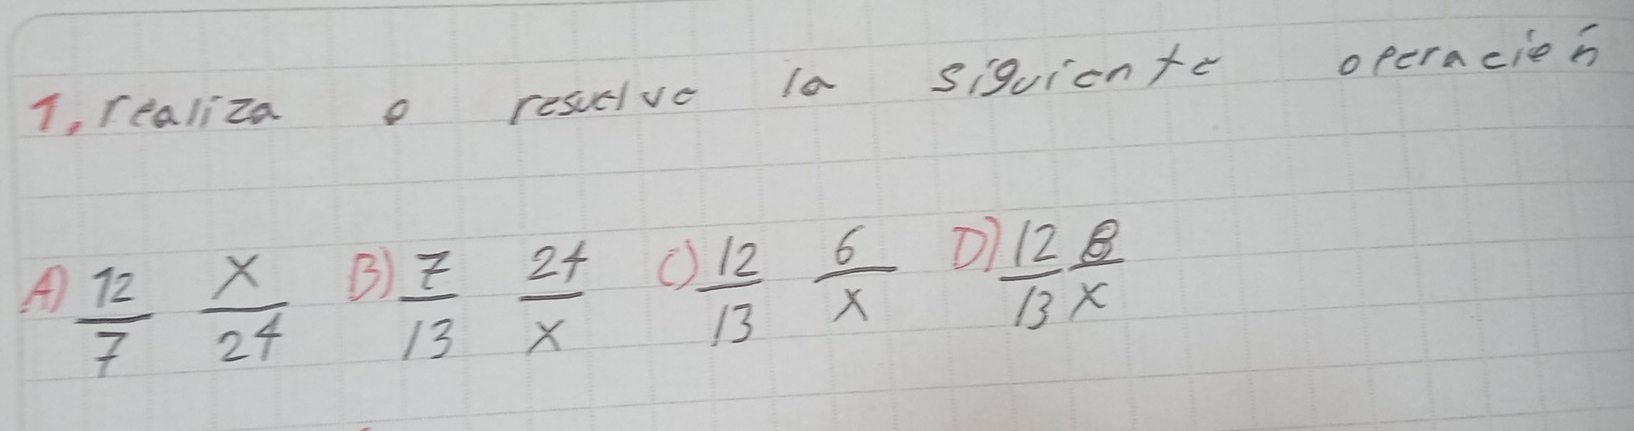 1. realiza o resuelve la siguiente operación
A) 12/7 x/24 B) 7/13 24/x C) 12/13 6/x D) 12/13 8/x